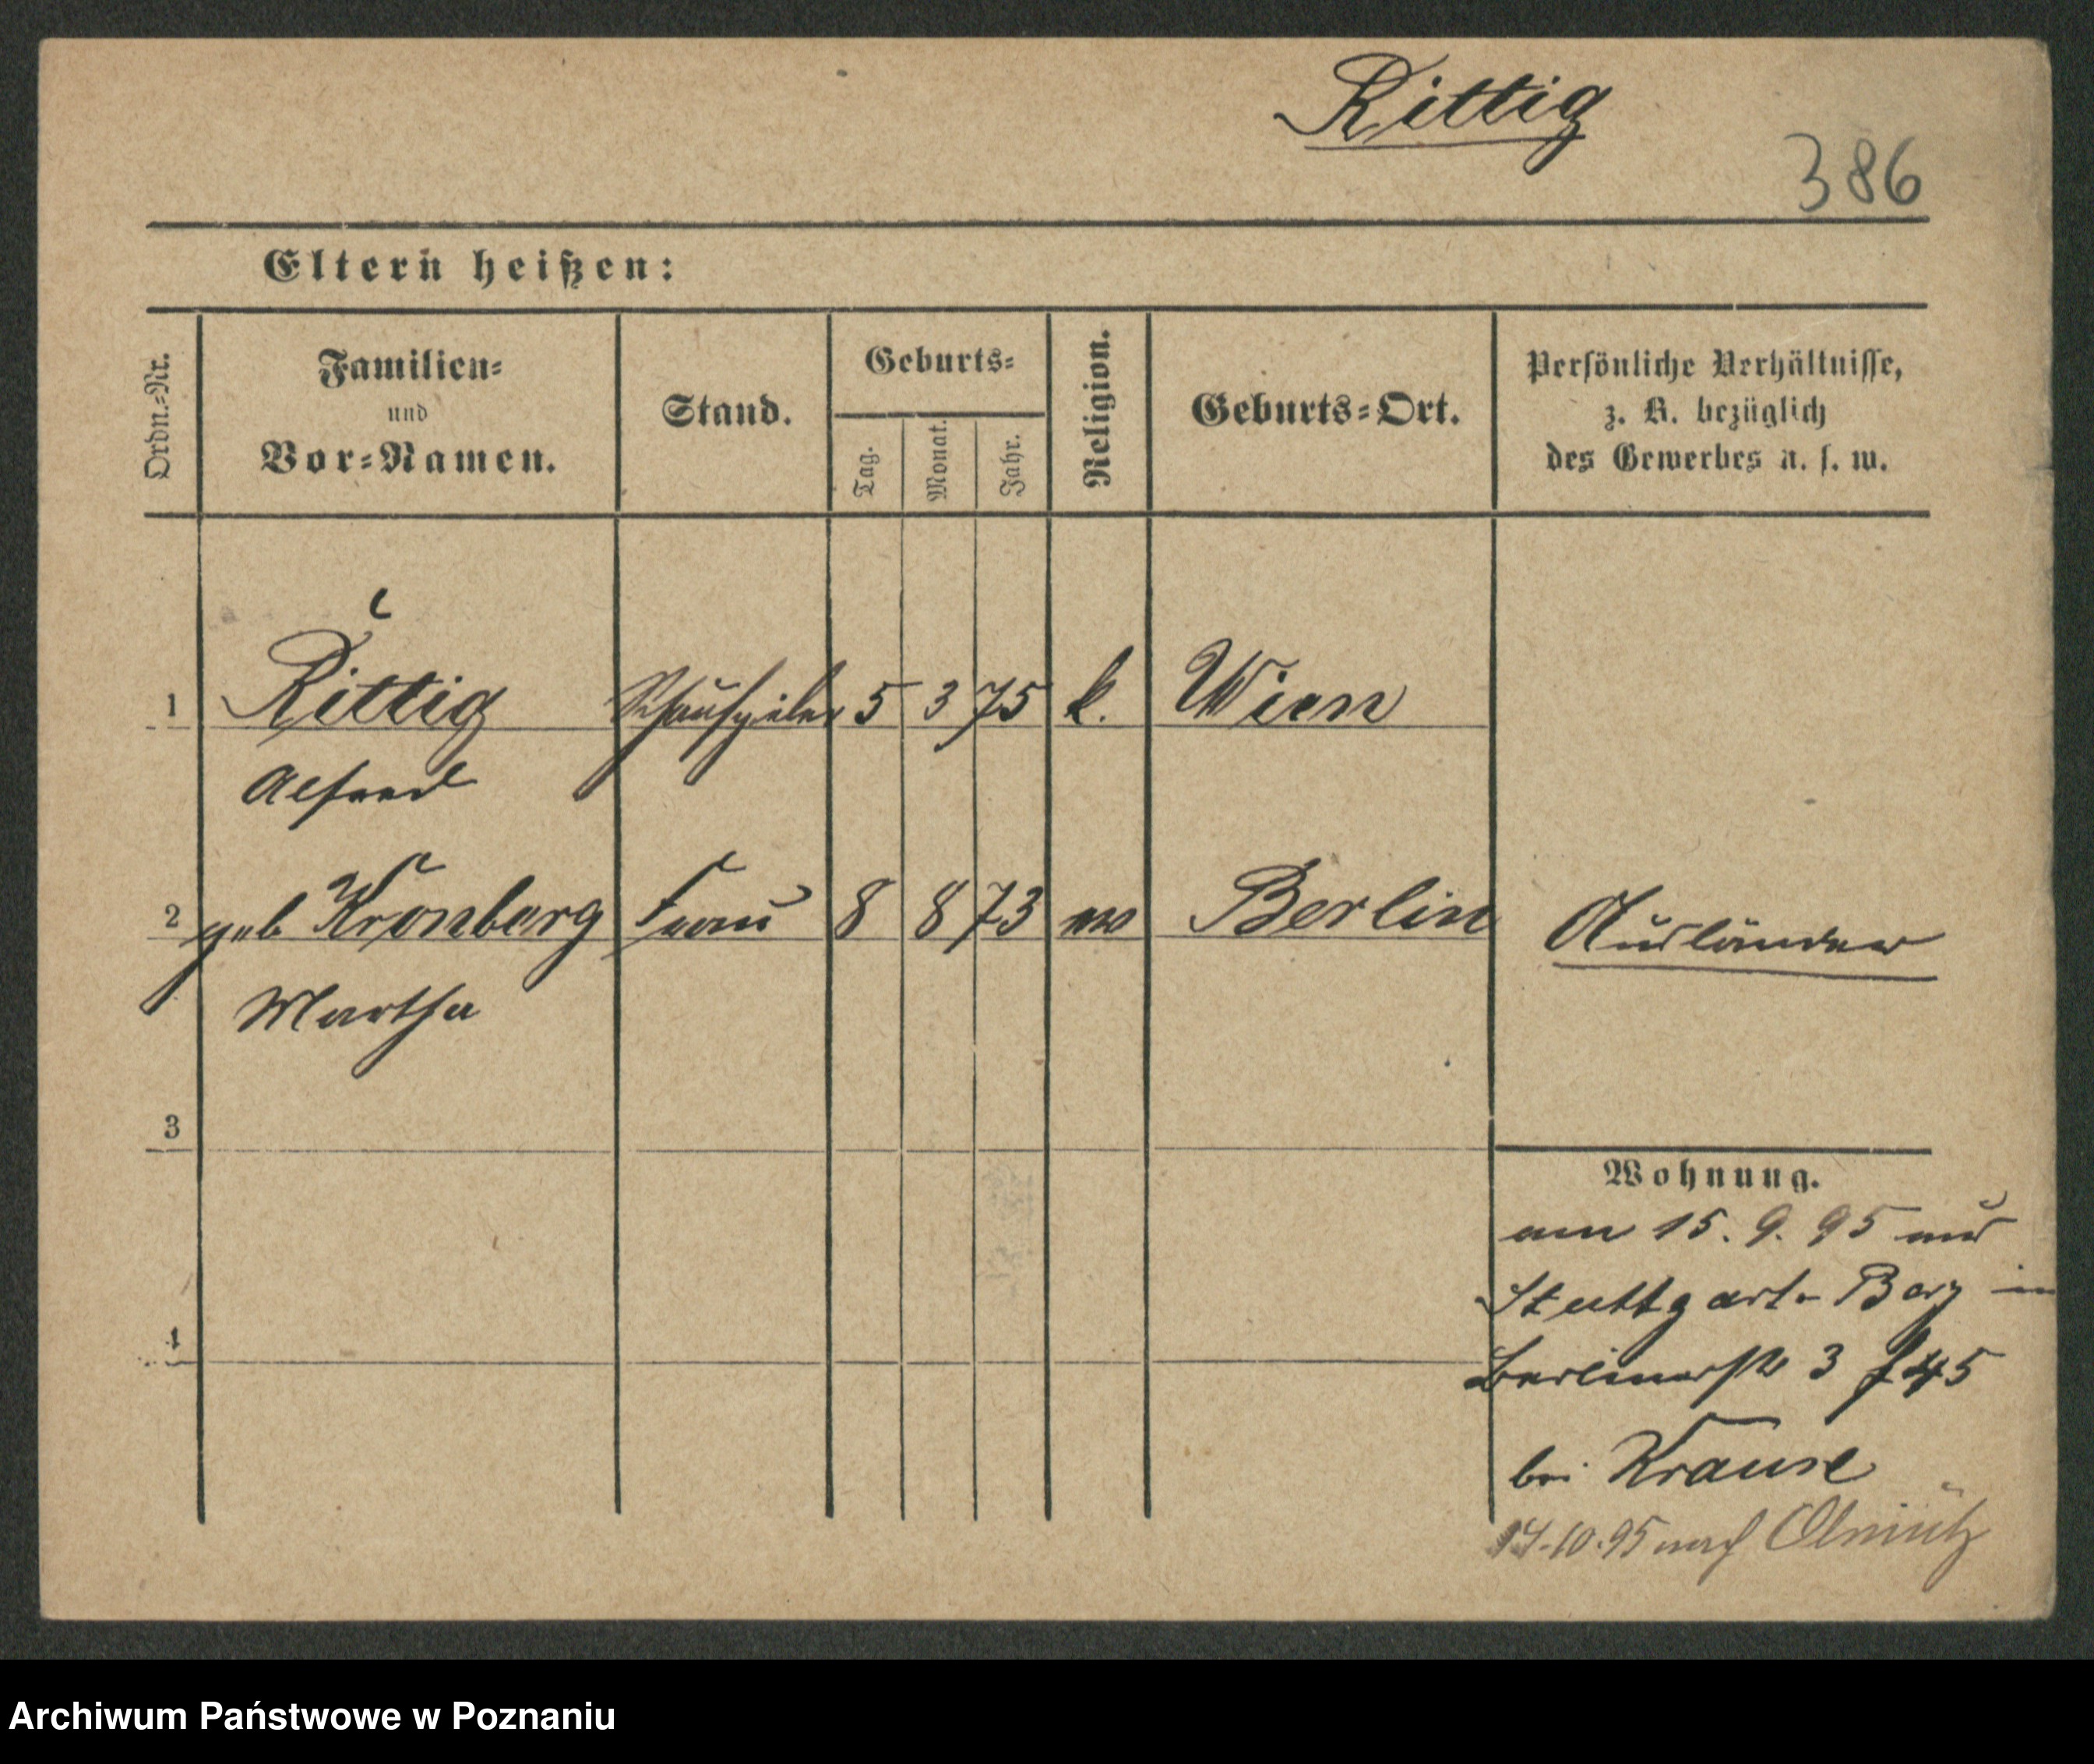 Rittig
386
Eltern heißen:
Ordn.-Nr.
Familien-
und
Vor-Namen.
Stand.
Geburts-
Tag.
Monat.
Jahr.
Religion.
Geburts-Ort.
Persönliche Verhältnisse,
z. B. bezüglich
des Gewerbes u. s. w.
1 Rittig Schauspieler 5 3 75 k. Wien
Alfred
2 geb Kronberg Frau 8 8 73 Berlin
Ausländer
Martha
3
Wohnung.
am 15. 9. 95 aus
Stuttgart- Berg in
4
Berlinerstr 3 45
bei Krause
14.10.95 nach Olmütz
Archiwum Państwowe w Poznaniu